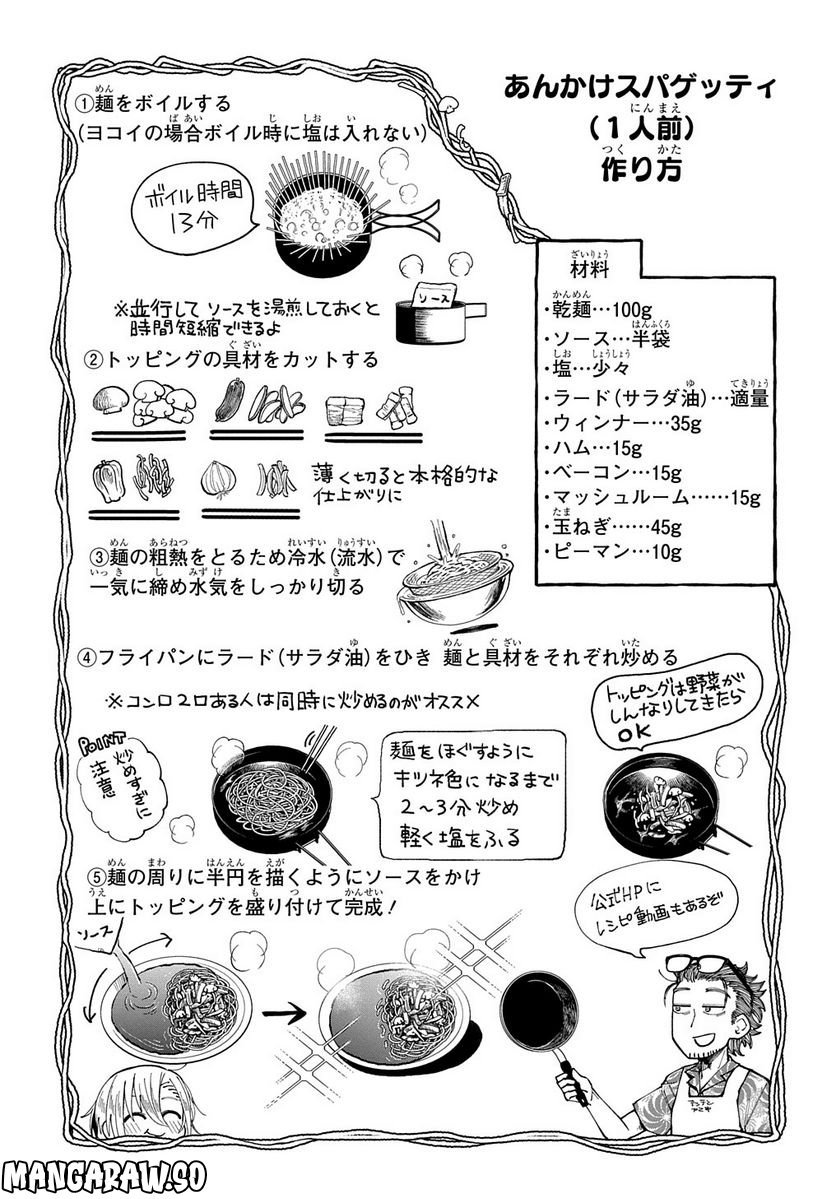 あんかけスパゲッティ
(1人前)
作り方
①麺をボイルする
(ヨコイの場合ボイル時に塩は入れない)
ボイル時間
13分
※並行して ソースを湯煎しておくと
時間短縮できるよ
ソース
材料
・乾麺…100g
・ソース…半袋
・塩…少々
・ラード(サラダ油)…適量
・ウィンナー…35g
・ハム…15g
・ベーコン…15g
・マッシュルーム……15g
・玉ねぎ……45g
・ピーマン…10g
②トッピングの具材をカットする
薄く切ると本格的な
仕上がりに
③麺の粗熱をとるため冷水(流水)で
一気に締め水気をしっかり切る
④フライパンにラード(サラダ油)をひき 麺と具材をそれぞれ炒める
※コンロ2口ある人は同時に炒めるのがオススメ
POINT
炒めすぎに
注意
麺をほぐすように
キツネ色になるまで
2〜3分炒め
軽く塩をふる
トッピングは野菜が
しんなりしてきたら
OK
⑤麺の周りに半円を描くようにソースをかけ
上にトッピングを盛り付けて完成!
ソース
公式HPに
レシピ動画もあるぞ
MANGARAW.SO